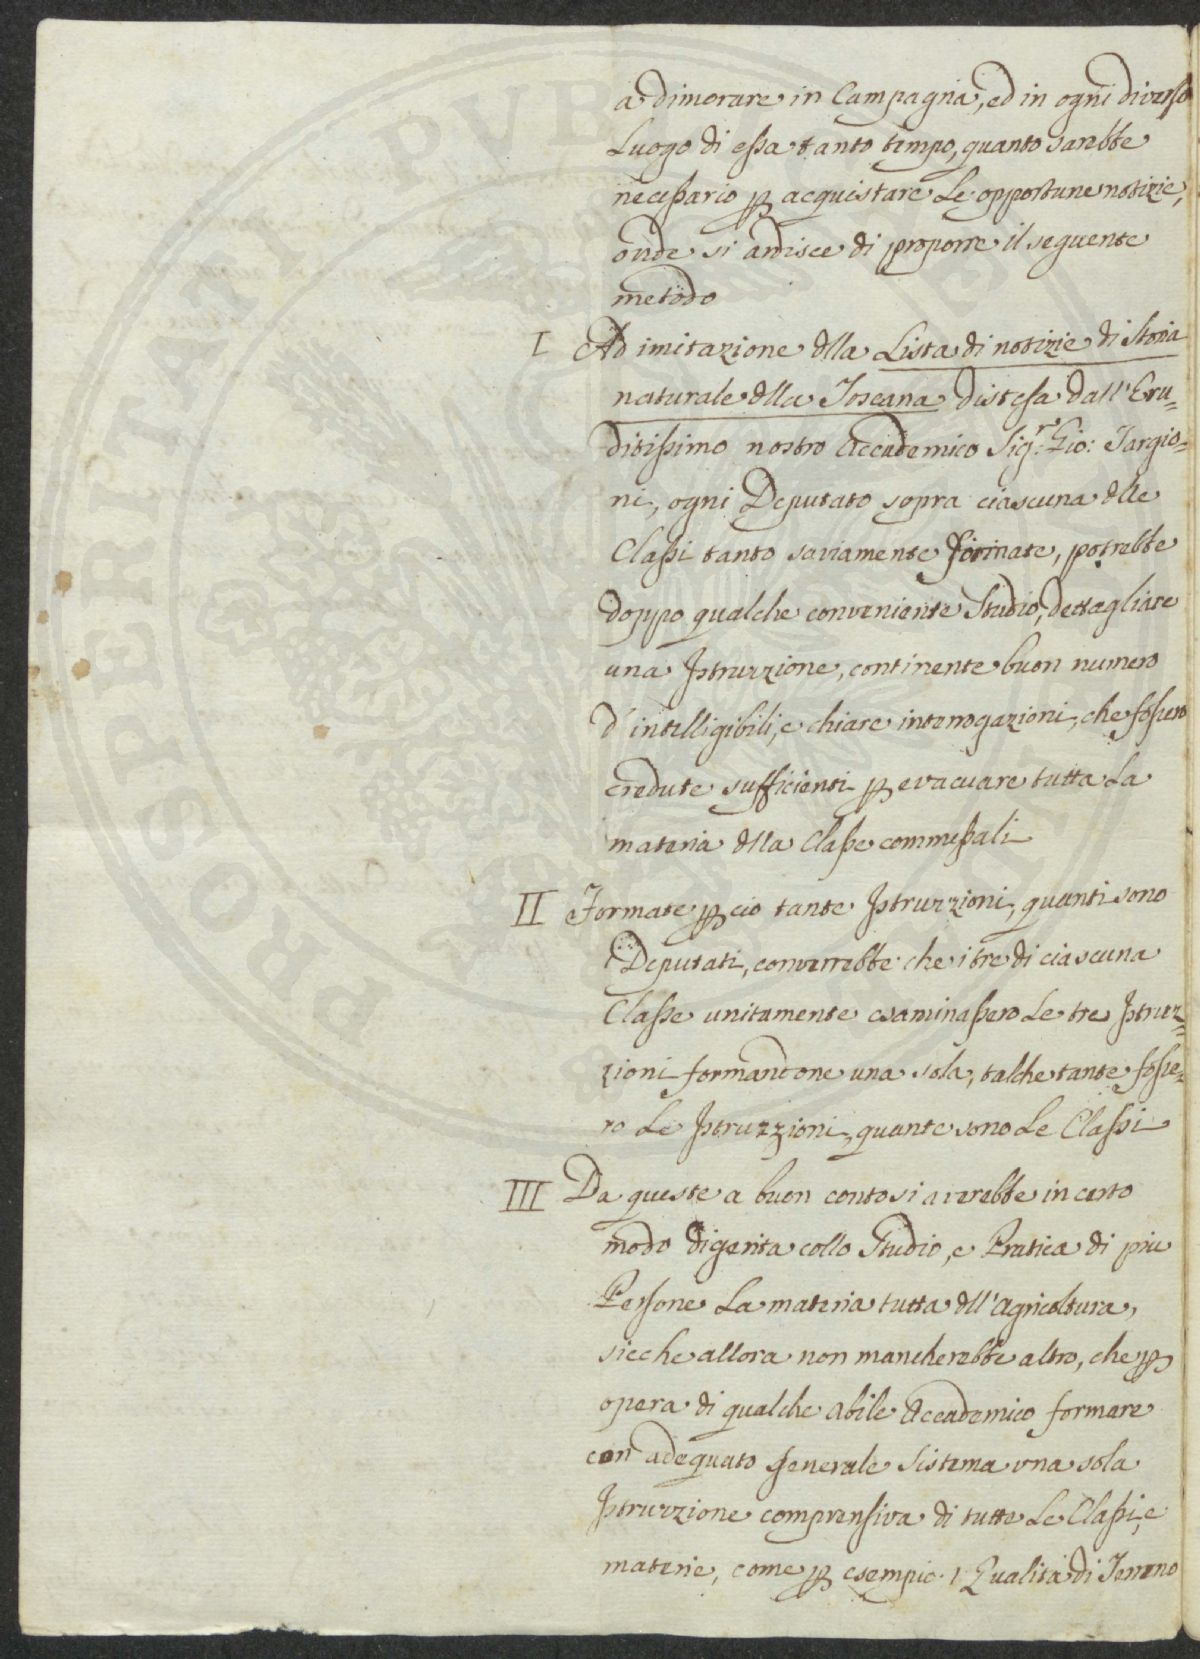 a dimorare in Campagna, ed in ogni diverso
Luogo di essa tanto tempo, quanto sarebbe
necessario p acquistare le opportune notizie,
onde si ardisce di proporre il seguente
metodo
I Ad imitazione dlla Lista di notizie di Storia
naturale dlla Toscana distesa dall'Eru=
ditissimo nostro Accademico Sig.r Gio: Targio=
ni, ogni Deputato sopra ciascuna dlle
Classi tanto saviamente formate, potrebbe
doppo qualche conveniente Studio, dettagliare
una Istruzzione, continente buon numero
d'intelligibili, e chiare interrogazioni, che fossero
credute sufficienti p evacuare tutta la
materia dlla Classe commessali
II Formate p ciò tante Istruzzioni, quanti sono
i Deputati, converrebbe che i tre di ciascuna
Classe unitamente esaminassero le tre Istruz=
zioni formandone una sola, talche tante fosse=
ro le Istruzzioni, quante sono le Classi
III Da queste a buon conto si averebbe in certo
modo digerita collo Studio, e Pratica di piu
Persone la materia tutta dll'Agricoltura,
sicche allora non mancherebbe altro, che p
opera di qualche abile Accademico formare
con adequato generale Sistema una sola
Istruzzione comprensiva di tutte le Classi, e
materie, come p esempio. 1 Qualità di Terreno
PROSPERITATI PVBLICAE